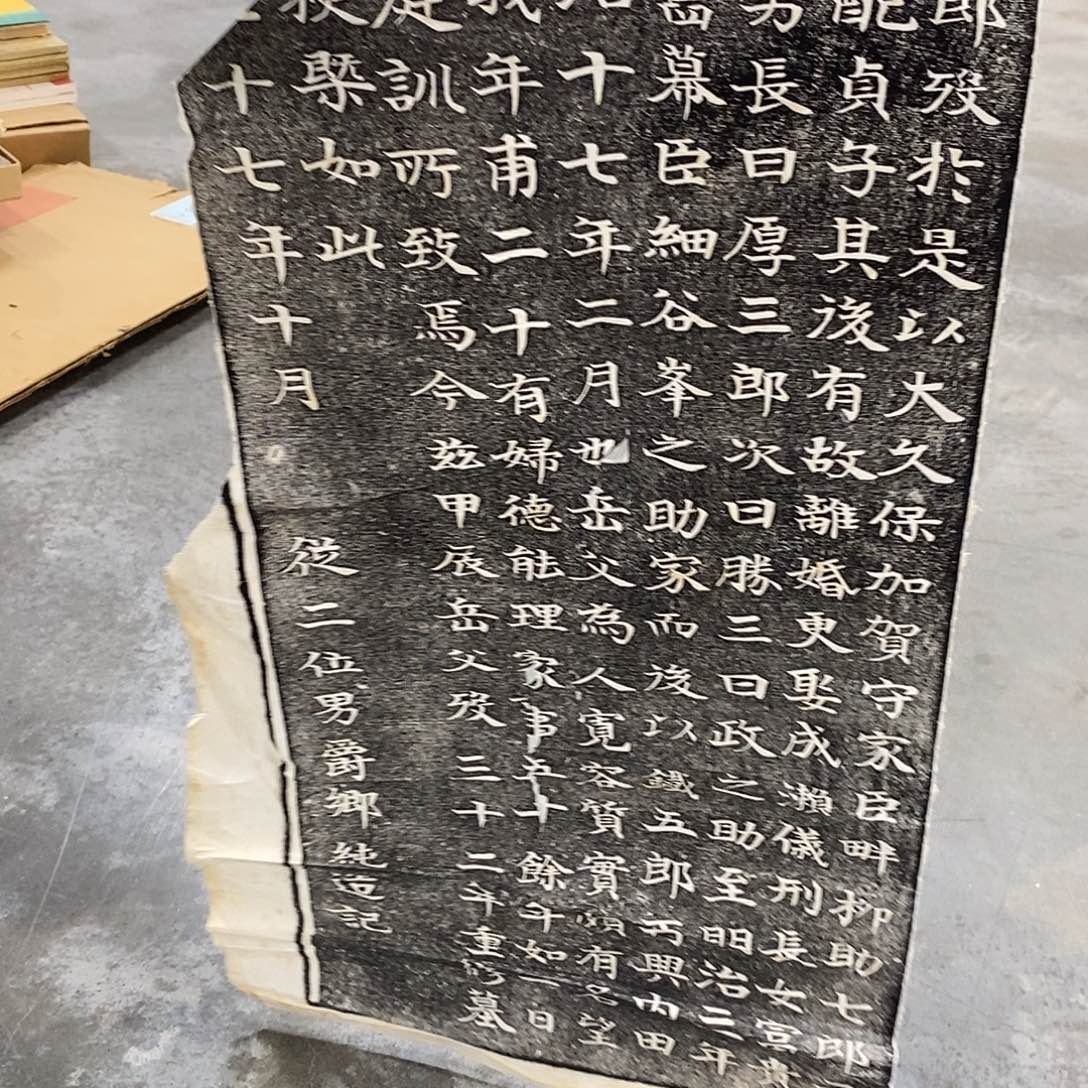 郎歿於是以大久保加賀守家臣畔柳助七郎
配貞子其後有故離婚更娶成瀬儀刑長女宮貴
男長曰厚三郎次曰勝三曰政之助至明治二年
幕臣細谷峯之助家而後以鐵五郎再興内田
十七年二月也岳父為人寛容質實頗有名望
我年甫二十有婦德能理家事五十餘年如一日
庭訓所致焉今茲甲辰岳父歿三十二年重修墓
槩如此
十七年十月 従二位男爵郷純造記